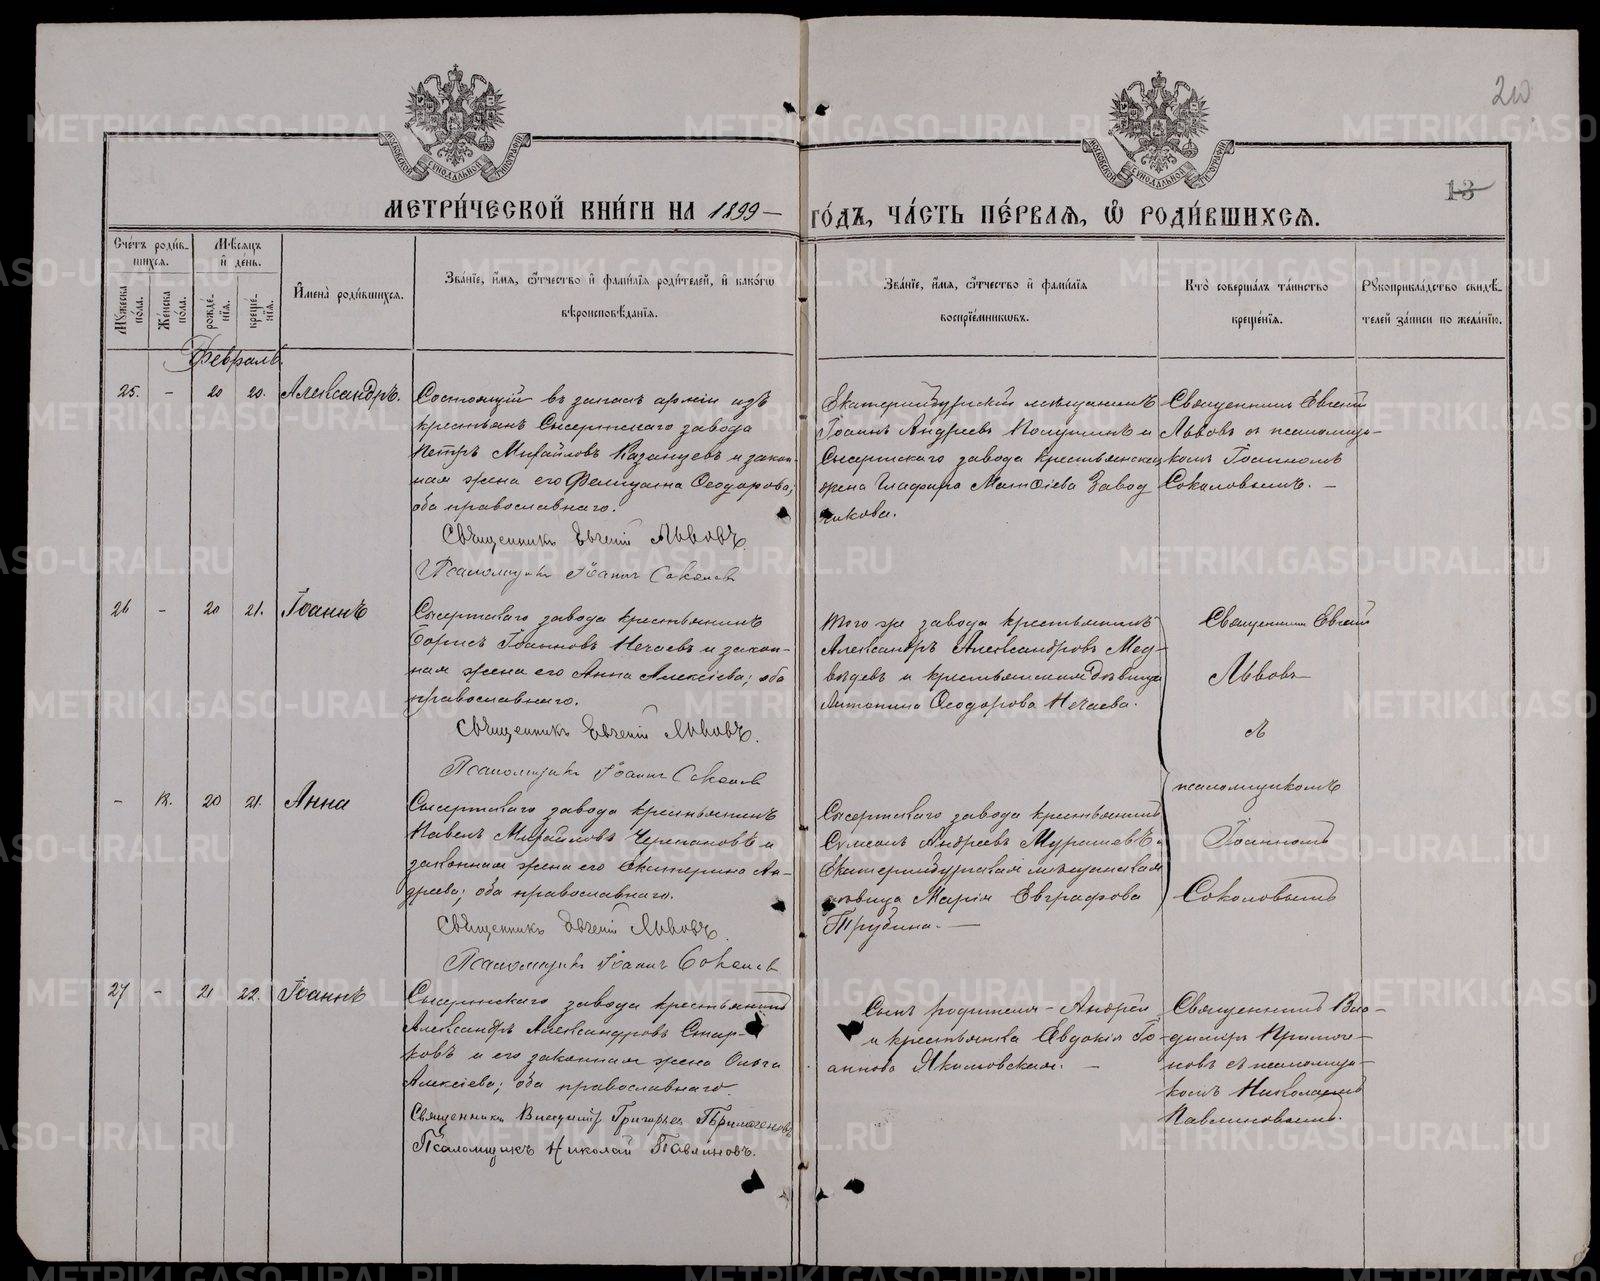 20
13
МОСКОВСКОЙ СУНОДАЛЬНОЙ ТИПОГРАФІИ
МОСКОВСКОЙ СУНОДАЛЬНОЙ ТИПОГРАФІИ
МЕТРИ́ЧЕСКОЙ КНИ́ГИ НА 1899 — ГО́ДЪ, ЧА́СТЬ ПЕ́РВАЯ, Ѽ РОДИ́ВШИХСѦ.
Сче́тъ роди́в-
шихсѧ.
Мꙋжеска по́ла.
Же́нска по́ла.
Мѣсѧцъ
и҆ де́нь.
рожде́-
нїѧ.
креще́-
нїѧ.
И҆мена̀ роди́вшихсѧ.
Зва́нїе, и҆́мѧ, ѻ҆́тчество и҆ фамѝлїѧ роди́телей, и҆ како́гѡ
вѣроисповѣ́данїѧ.
Зва́нїе, и҆́мѧ, ѻ҆́тчество и҆ фамѝлїѧ
воспрїе́мникѡвъ.
Кто̀ соверша́лъ та́инство
креще́нїѧ.
Рꙋкоприкла́дство свидѣ́-
телей за́писи по жела́нїю.
Февраль.
25. - 20 20. Александръ.
Состоящій въ запасѣ арміи изъ
крестьянъ Сысертскаго завода
Петръ Михайловъ Казанцевъ и закон-
ная жена его Фелицата Ѳеодорова;
оба православнаго.
Священникъ Евгеній Львовъ.
Псаломщикъ Іоаннъ Соколовъ
Екатеринбургскій мѣщанинъ
Іоаннъ Андреевъ и
Сысертскаго завода крестьянская
жена Глафира Матѳіева Завод
чикова.
Священникъ Евгеній
Львовъ съ псаломщи-
комъ Іоанномъ
Соколовымъ. —
26 - 20 21. Іоаннъ
Сысертскаго завода крестьянинъ
Борисъ Іоанновъ Нечаевъ и закон-
ная жена его Анна Алексіева; оба
православнаго.
Священникъ Евгеній Львовъ.
Псаломщикъ Іоаннъ Соколовъ
того же завода крестьянинъ
Александръ Александровъ Мед-
вѣдевъ и крестьянская дѣвица
Антонина Ѳеодорова Нечаева.
Священникъ Евгеній
Львовъ
псаломщикомъ
Іоанномъ
Соколовымъ
- 12. 20 21. Анна
Сысертскаго завода крестьянинъ
Павелъ Михайловъ Черепановъ и
законная жена его Екатерина Ан-
дреева; оба православнаго.
Священникъ Евгеній Львовъ.
Псаломщикъ Іоаннъ Соколовъ
Сысертскаго завода крестьянинъ
Симеонъ Андреевъ Мурашевъ и
Екатеринбургская мѣщанская
дѣвица Марія Евграфова
Трубина. —
27 - 21 22. Іоаннъ
Сысертскаго завода крестьянинъ
Александръ Александровъ Стар-
ковъ и его законная жена Ольга
Алексіева; оба православнаго
Священникъ Владиміръ Григорьев
Псаломщикъ Николай Павлиновъ.
Сынъ родителя - Андрей
и крестьянка Евдокія Іо-
аннова Якимовская. —
Священникъ Вла-
диміръ
новъ съ псаломщи-
комъ Николаемъ
Павлиновымъ.
METRIKI.GASO-URAL.RU